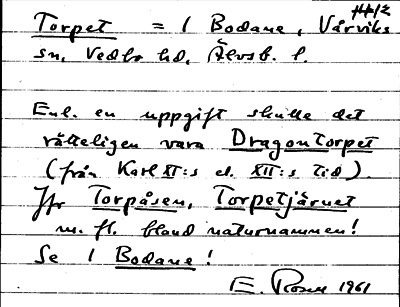 Torpet = 1 Bodane, Vårviks
sn, Vedbo hd, Älvsb. l.
Enl. en uppgift skulle det
rätteligen vara Dragontorpet
(från Karl XI:s el. XII:s tid).
Jfr Torpåsen, Torpetjärnet
m. fl. bland naturnamnen!
Se 1 Bodane!
E. Rosen 1961